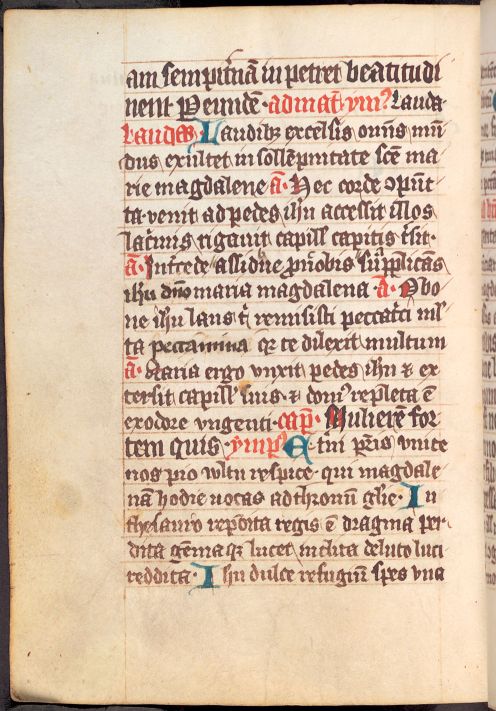 am sempit̾nā in petret beatitudi
nem Per eundē · ad mat̄ ymº Lauda
Laudes Laudib⁊ excelsis om̄is mū
dus exultet in sollēpnitate scē ma
rie magdalene ā · Hec corde ꝯpūc
ta venit ad pedes ih̄u accessit illos
lac̾mis rigauit capill̾ capitis t̾sit ·
ā · Int̾cede assidue p nobis supplicās
ih̄u dn̄o maria magdalena ā · O bo
ne ih̄u laus t̾ remisisti peccat̾ci ml̾
ta peccamina qr te dilexit multum
ā · Maria ergo vnxit pedes ih̄u ⁊ ex
tersit capill̾ suis ⁊ dom⁹ repleta ē
ex odore vngenti · cap̄ · Mulierē for
tem quis · ymp⁹ Et̾ni pr̄is vnice
nos pio wltu respice · qui magdale
nā hodie uocas ad thronū gl̄ie · In
thesauro repoīta regis ē dragma per
dita gēmaq⁊ lucet inclita de luto luci
reddita · Ih̄u dulce refugiū spes vna